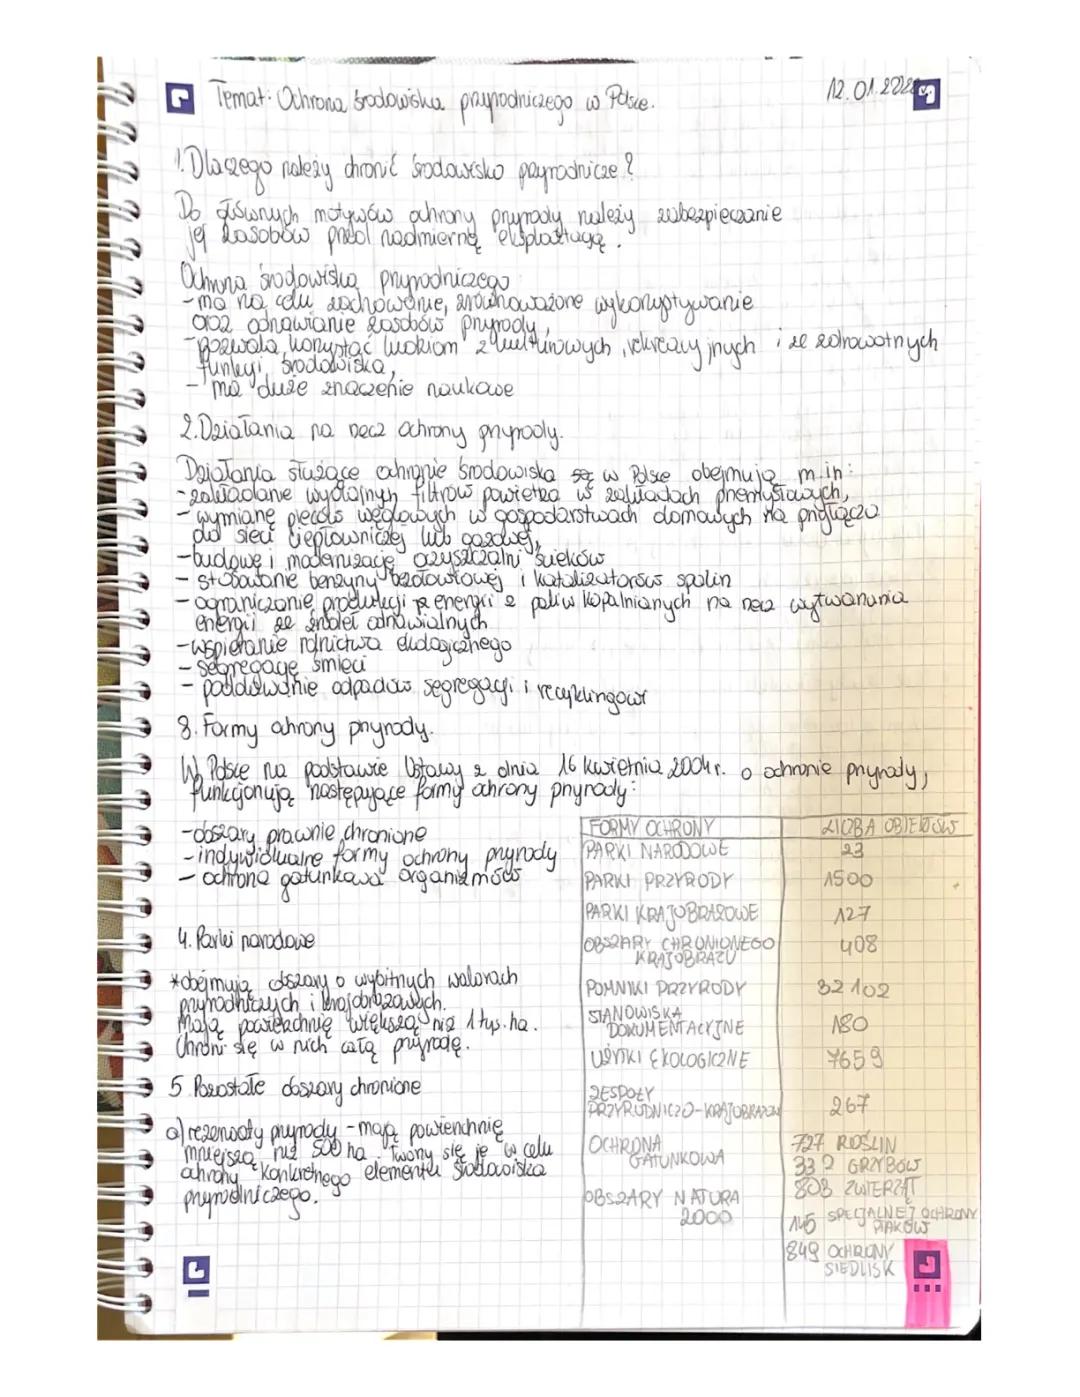 Temat: Ochrona środowiska przyrodniczego w Polsce.
12.01.
1. Dlaczego należy chronić środowisko przyrodnicze?
Do głównych motywów ochrony przyrody należy zabezpieczanie
jej zasobów przed nadmierną eksploatacją.
Ochrona środowiska przyrodniczego:
- ma na celu zachowanie, zrównoważone wykorzystywanie
oraz odnawianie zasobów przyrody,
- pozwala korzystać ludziom z kulturowych, rekreacyjnych i ze zdrowotnych
funkcji środowiska,
- ma duże znaczenie naukowe
2. Działania na rzecz ochrony przyrody.
Działania służące ochronie środowiska w Polsce obejmują m.in:
- zakładanie wydajnych filtrów powietrza w zakładach przemysłowych,
- wymianę pieców węglowych w gospodarstwach domowych na przyłącza
do sieci ciepłowniczej lub gazowej,
- budowę i modernizację oczyszczalni ścieków
- stosowanie benzyny bezołowiowej i katalizatorów spalin
- ograniczanie produkcji energii z paliw kopalnianych na rzecz wytwarzania
energii ze źródeł odnawialnych
- wspieranie rolnictwa ekologicznego
- segregację śmieci
- poddawanie odpadów segregacji i recyklingowi
3. Formy ochrony przyrody.
W Polsce na podstawie Ustawy z dnia 16 kwietnia 2004r. o ochronie przyrody,
funkcjonują następujące formy ochrony przyrody:
- obszary prawnie chronione
- indywidualne formy ochrony przyrody
- ochrona gatunkowa organizmów
4. Parki narodowe
*obejmują obszary o wybitnych walorach
przyrodniczych i krajobrazowych.
Mają powierzchnię większą niż 1 tys. ha.
Chroni się w nich całą przyrodę.
5 Pozostałe obszary chronione
a) rezerwaty przyrody - mają powierzchnię
mniejszą niż 500 ha. Tworzy się je w celu
ochrony konkretnego elementu środowiska
przyrodniczego.
FORMY OCHRONY LICZBA OBIEKTÓW
PARKI NARODOWE 23
PARKI PRZYRODY 1500
PARKI KRAJOBRAZOWE 127
OBSZARY CHRONIONEGO
KRAJOBRAZU 408
POMNIKI PRZYRODY 32 102
STANOWISKA
DOKUMENTACYJNE 180
UŻYTKI EKOLOGICZNE 7659
ZESPOŁY
PRZYRODNICZO-KRAJOBRAZOW 267
OCHRONA
GATUNKOWA
727 ROŚLIN
332 GRZYBÓW
803 ZWIERZĄT
OBSZARY NATURA
2000
145 SPECJALNEJ OCHRONY
PTAKÓW
849 OCHRONY
SIEDLISK